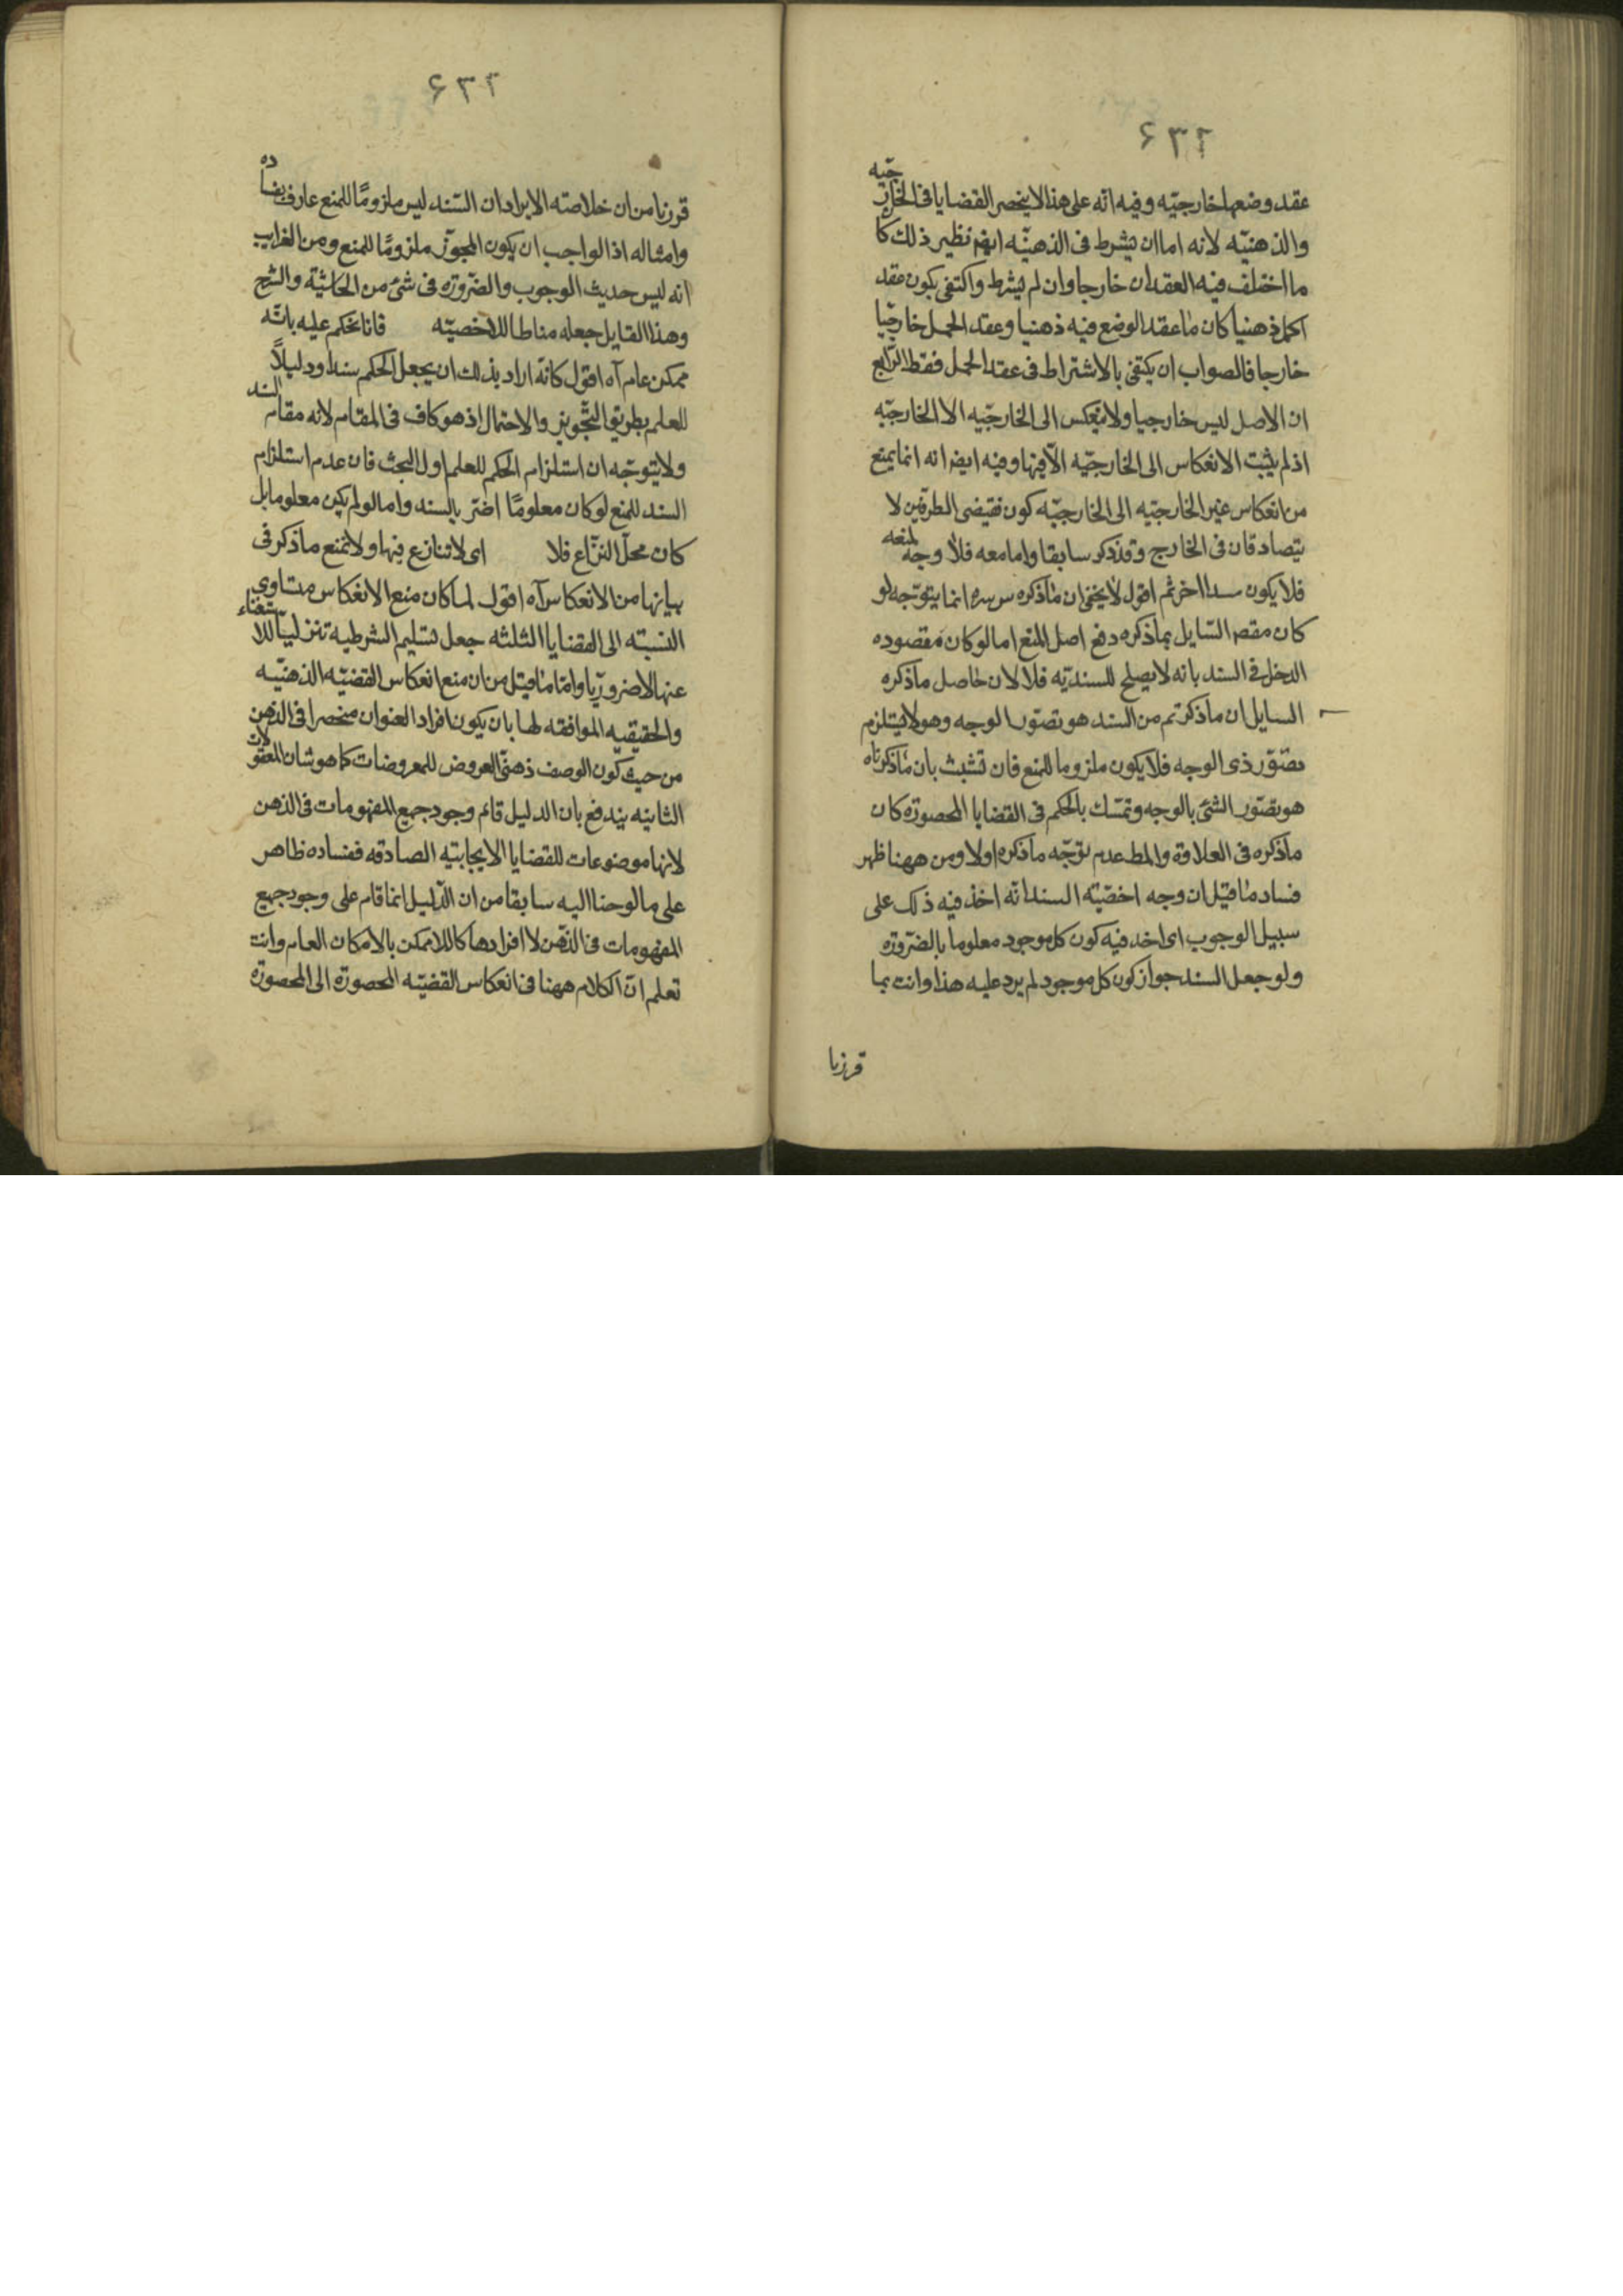 ٦٣٢
عقد وضعها خارجيّه وفيه انه على هذا لا ينحصر القضايا فى الخارجيّه
والذهنيّه لانه اما ان يشرط فى الذهنيّه ايضم نظير ذلك كا
ما اختلف فيه العقدان خارجا وان لم يشرط واكتفى بكون عقد
الحمل ذهنيا كان ما عقد الوضع فيه ذهنيا وعقد الحمل خارجيّا
خارجا فالصواب ان يكتفى بالاشتراط فى عقد الحمل فقط الرّابع
ان الاصل ليس خارجيا ولا ينعكس الى الخارجيّه الا الخارجيّه
اذ لم يثبت الانعكاس الى الخارجيّه الّا فيها وفيه ايضا انه انما يمنع
من انعكاس غير الخارجيّه الى الخارجيّه كون نقيضى الطرفين لا
يتصادقان فى الخارج وقد ذكر سابقا واما معه فلا وجه لمنعه
فلا يكون سندا اخر ثم اقول لا يخفى ان ما ذكره س سره انما يتوجه لو
كان مقصد السّايل بما ذكره دفع اصل المنع اما لو كان مقصوده
الدخل فى السند بانه لا يصلح للسنديّه فلا لان حاصل ما ذكره
السايل ان ما ذكرتم من السند هو تصوّر الوجه وهو لا يستلزم
تصوّر ذى الوجه فلا يكون ملزوما للمنع فان تشبث بان ما ذكرناه
هو تصّور الشئ بالوجه وتمسّك بالحكم فى القضايا المحصوره كان
ما ذكره فى العلاوة والمط عدم توجّه ما ذكره اولا ومن ههنا ظهر
فساد ما قيل ان وجه اخصّيّته السند انّه اخذ فيه ذلك على
سبيل الوجوب اى اخذ فيه كون كل موجود معلوما بالضّروره
ولو جعل السند جواز كون كل موجود لم يرد عليه هذا وانت بما
قررنا
٦٣٣
قررنا من ان خلاصته الايراد ان السّند ليس ملزومًا للمنع عارف بفساده
وامثاله اذ الواجب ان يكون المجوّز ملزومًا للمنع ومن الغرايب
انه ليس حديث الوجوب والضّروره فى شئ من الحاشيّة والشرح
وهذا القايل جعله مناطا للاخصيّه فانا نحكم عليه بانّه
ممكن عام آه اقول كانّه اراد بذلك ان يجعل الحكم سندا ودليلًا
للعلم بطريق التّجويز والاحتمال اذ هو كاف فى المقام لانه مقام السند
ولا يتوجّه ان استلزام الحكم للعلم اول البحث فان عدم استلزام
السند للمنع لو كان معلومًا اضّر بالسند واما لو لم يكن معلوما بل
كان محلّ النزّاع فلا اى لا تنازع فيها ولا نمنع ما ذكر فى
بيانها من الانعكاس آه اقول لما كان منع الانعكاس متساوى
النسبته الى القضايا الثلثه جعل تسليم الشرطيه تنزليّا للاستغناء
عنها لا ضروريّا وامّا ما قيل من ان منع انعكاس القضيّه الذهنيّه
والحقيقيه الموافقه لها بان يكون افراد العنوان منحصرا فى الذهن
من حيث كون الوصف ذهنىّ العروض للمعروضات كما هو شان المعقولات
الثانيه يندفع بان الدليل قائم وجود جميع المفهومات فى الذهن
لانها موضوعات للقضايا الايجابيّه الصادقه ففساده ظاهر
على ما لوحنا اليه سابقا من ان الدّليل انما قام على وجود جميع
المفهومات فى الذهن لا افرادها كاللاممكن بالامكان العام وانت
تعلم انّ الكلام ههنا فى انعكاس القضيّه المحصورة الى المحصورة